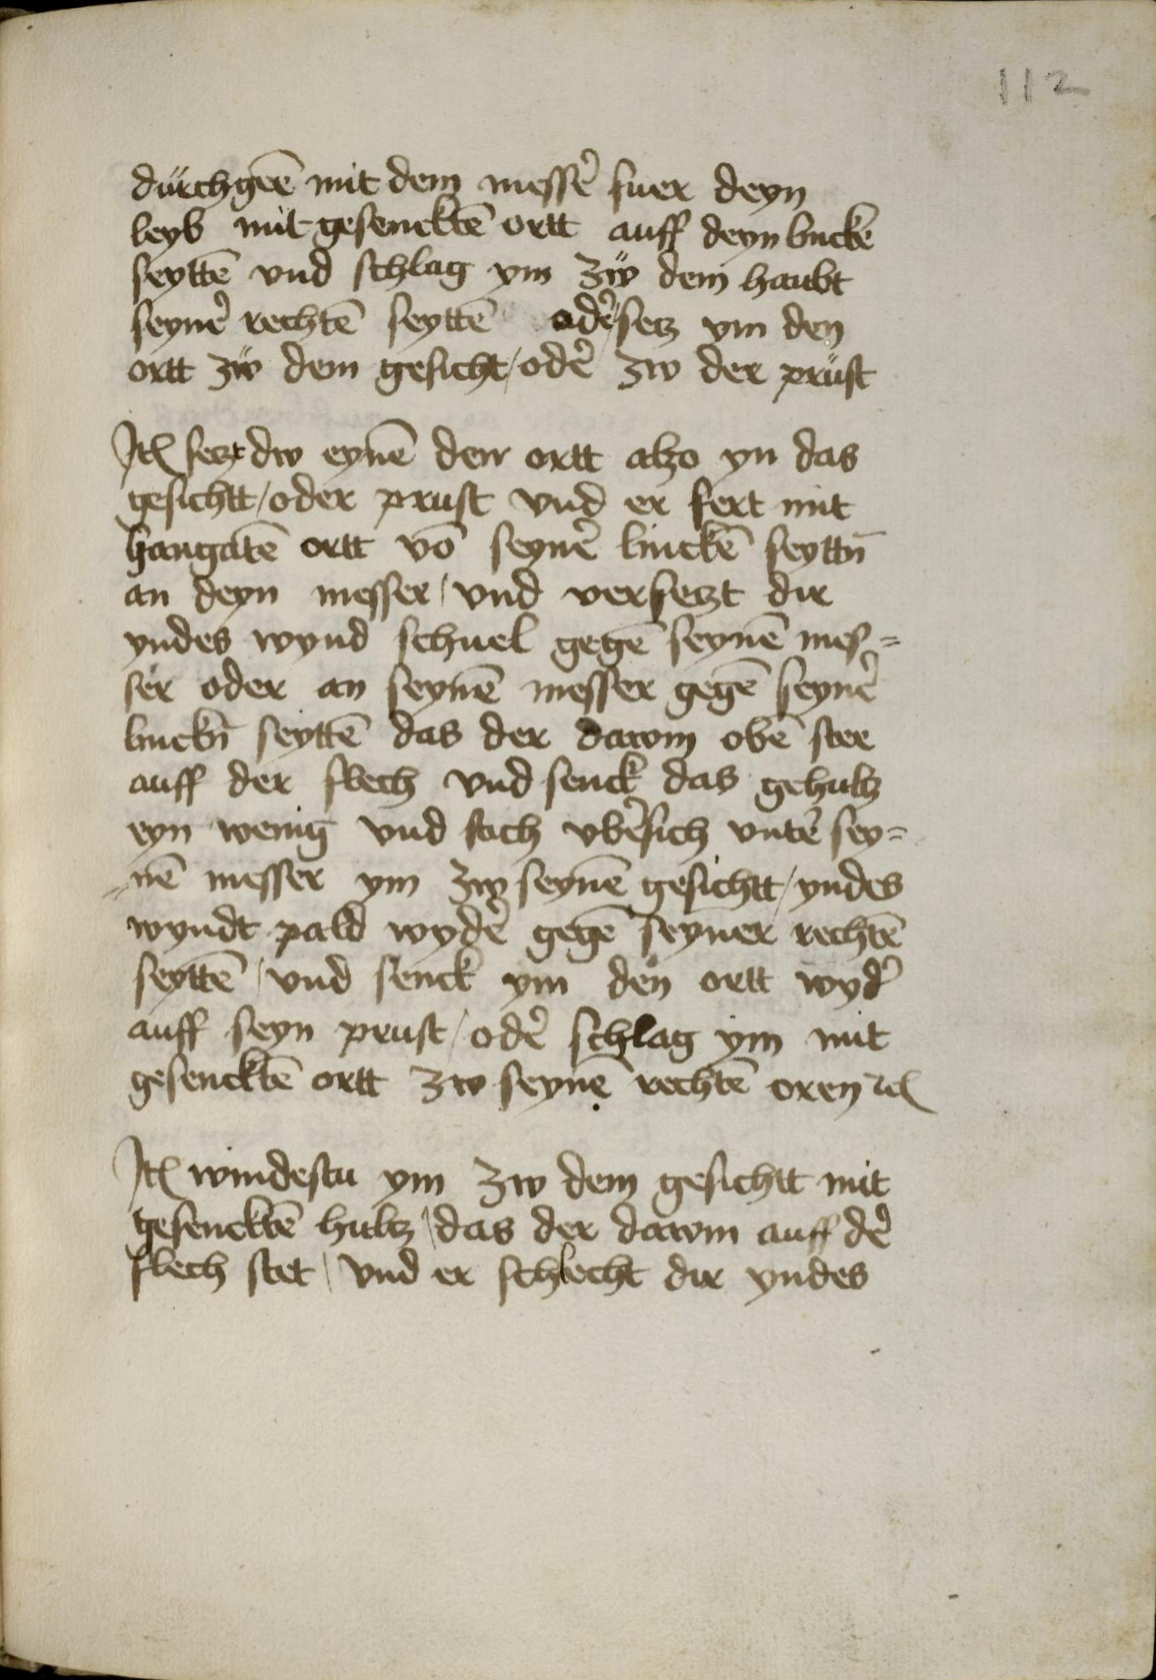 112
dürchgeē mit dem messē fuer deyn
leyb mit gesencktē ortt auff deyn lincke
seyttē vnd schlag ym zẅ dem haubt
seyne᷑ rechtē seyttē ode᷑ setz ym den
ortt zẅ dem gesicht / ode᷑ zw der prüst
Itꝫ setzt dw eynē den ortt alzo yn das
gesichtt / oder prust vnd er fert mit
hangatē ortt vō seyne᷑ linckē seyttn̄
an deyn messer / vnd versetzt dir
yndes wynd schnel gegē seynē mes=
ser oder an seynē messer gegē seyne᷑
linckn̄ seyttē das der dawm obē stee
auff der flech vnd senck das gehultz
eyn wenig vnd stich vbe᷑sich vnte᷑ sey=
nē messer ym zw seynē gesichtt / yndes
wyndt pald wyde᷑ gegē seyner rechtē
seyttē / vnd senck ym den ortt wyd᷑
auff seyn prust / ode᷑ schlag ym mit
gesencktē ortt zw seynē rechtē oren ꝛcꝫ
Itꝫ windestu ym zw dem gesichtt mit
gesencktē hultz / das der dawm auff de᷑
flech stet / vnd er schlecht dir yndes